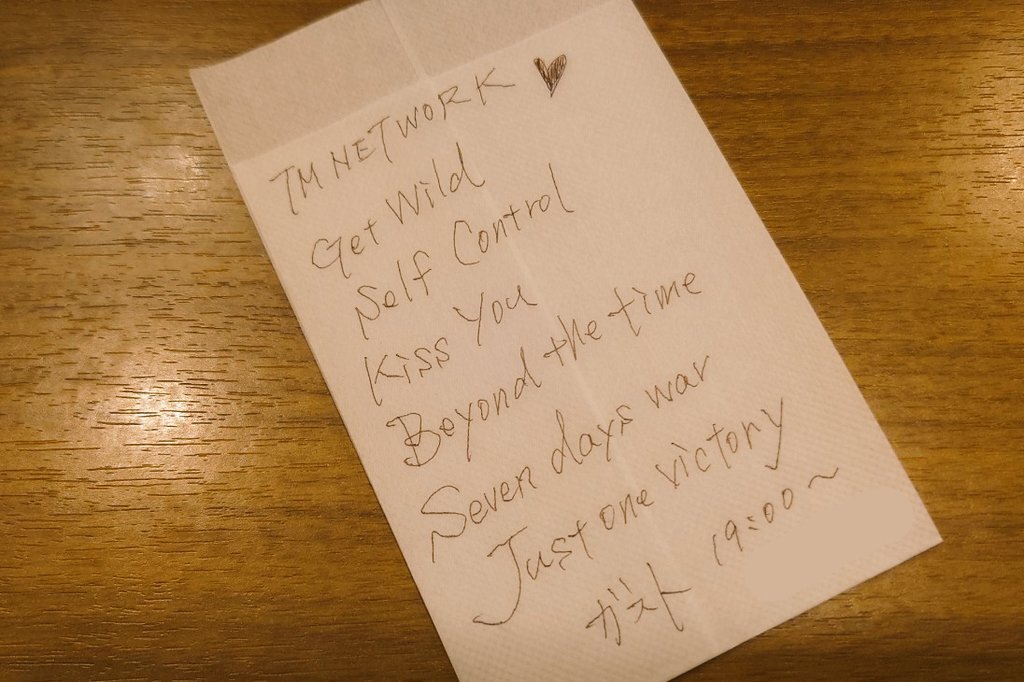 TM NETWORK ♥
Get Wild
Self Control
Kiss You
Beyond the time
Seven days war
Just one victory
ガスト 19:00〜